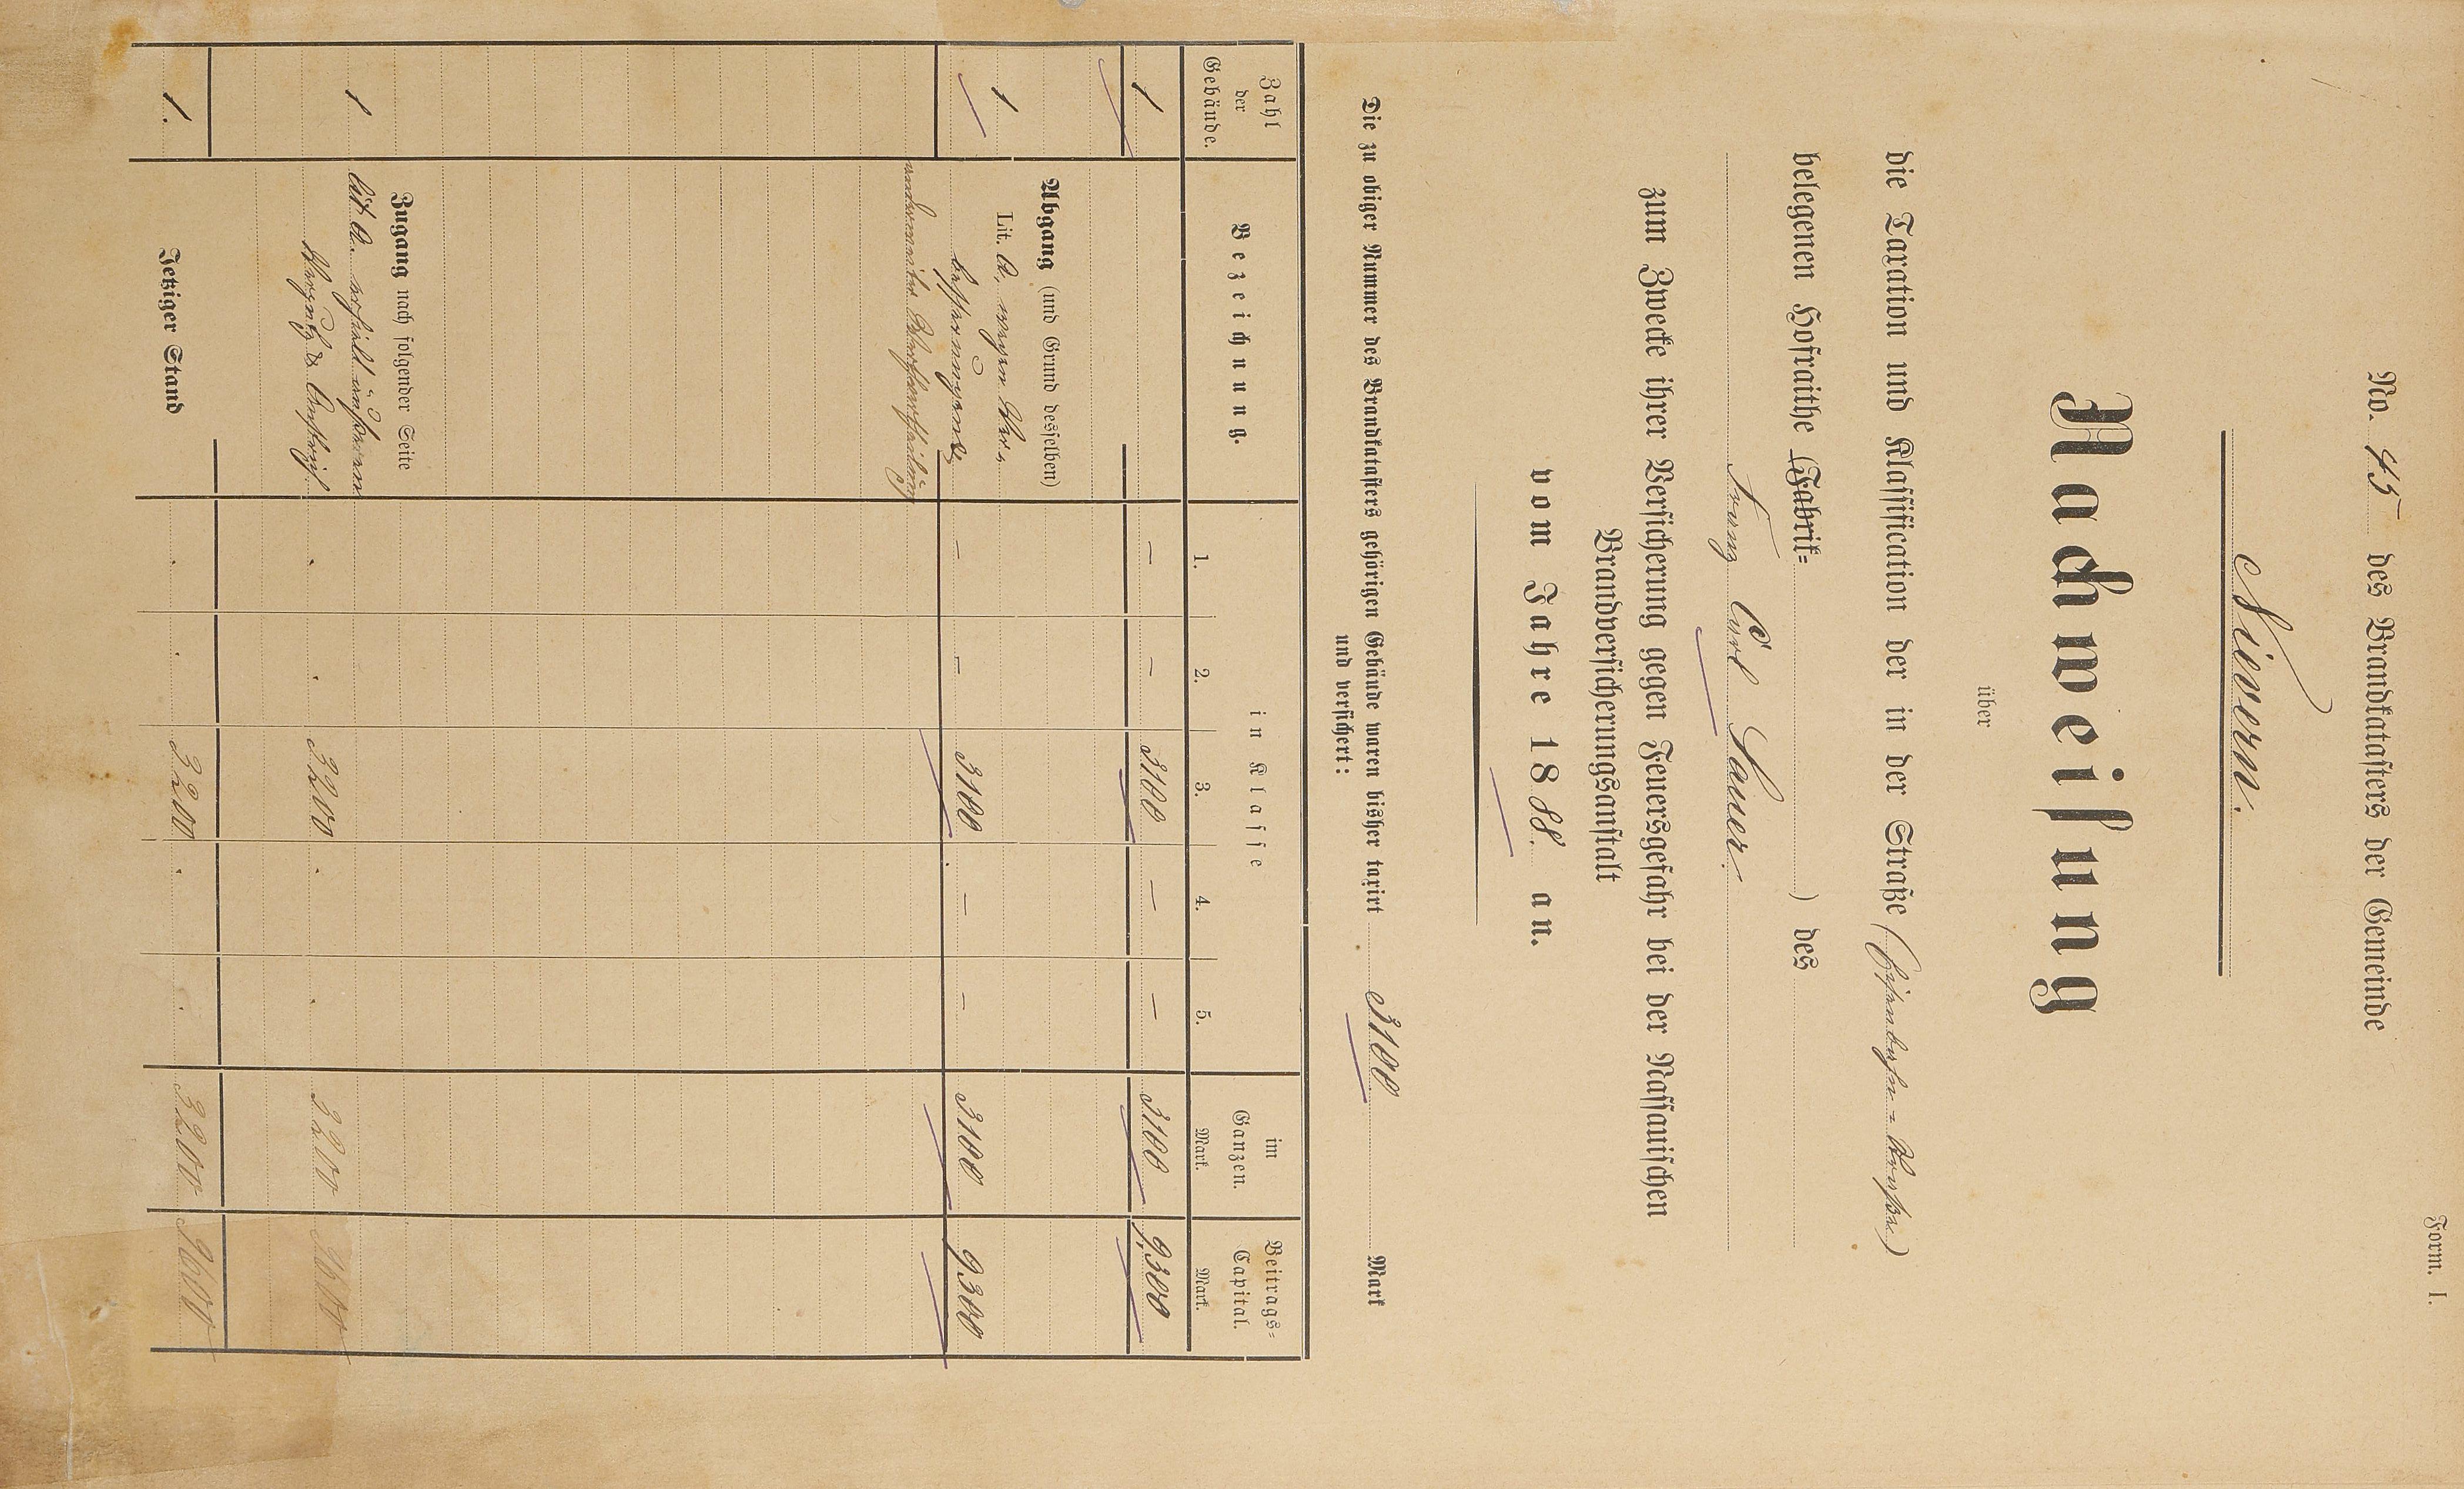 Form. I.
No. 45 des Brandkatasters der Gemeinde
Nivern.
Nachweisung
über
die Taxation und Klassification der in der Straße (Eisenbahn-Straße)
belegenen Hofraithe (Fabrik= ) des
Carl Sauer.
zum Zwecke ihrer Versicherung gegen Feuersgefahr bei der Nassauischen
Brandversicherungsanstalt
vom Jahre 1888. an.
Die zu obiger Nummer des Brandkatasters gehörigen Gebäude waren bisher taxirt 3100 Mark
und versichert:
Zahl der Gebäude. Bezeichnung. in Klasse im Ganzen. Beitrags=Capital.
1. 2. 3. 4. 5. Mark. Mark.
1 — — 3100 — — 3100 9,300
Abgang (und Grund desselben)
1 Lit. A. wegen
— — 3100 — — 3100 9300
Zugang nach folgender Seite
1 lit A.
. . 3200 . . 3200 9600
1. Jetziger Stand . . 3200 . . 3200 9600